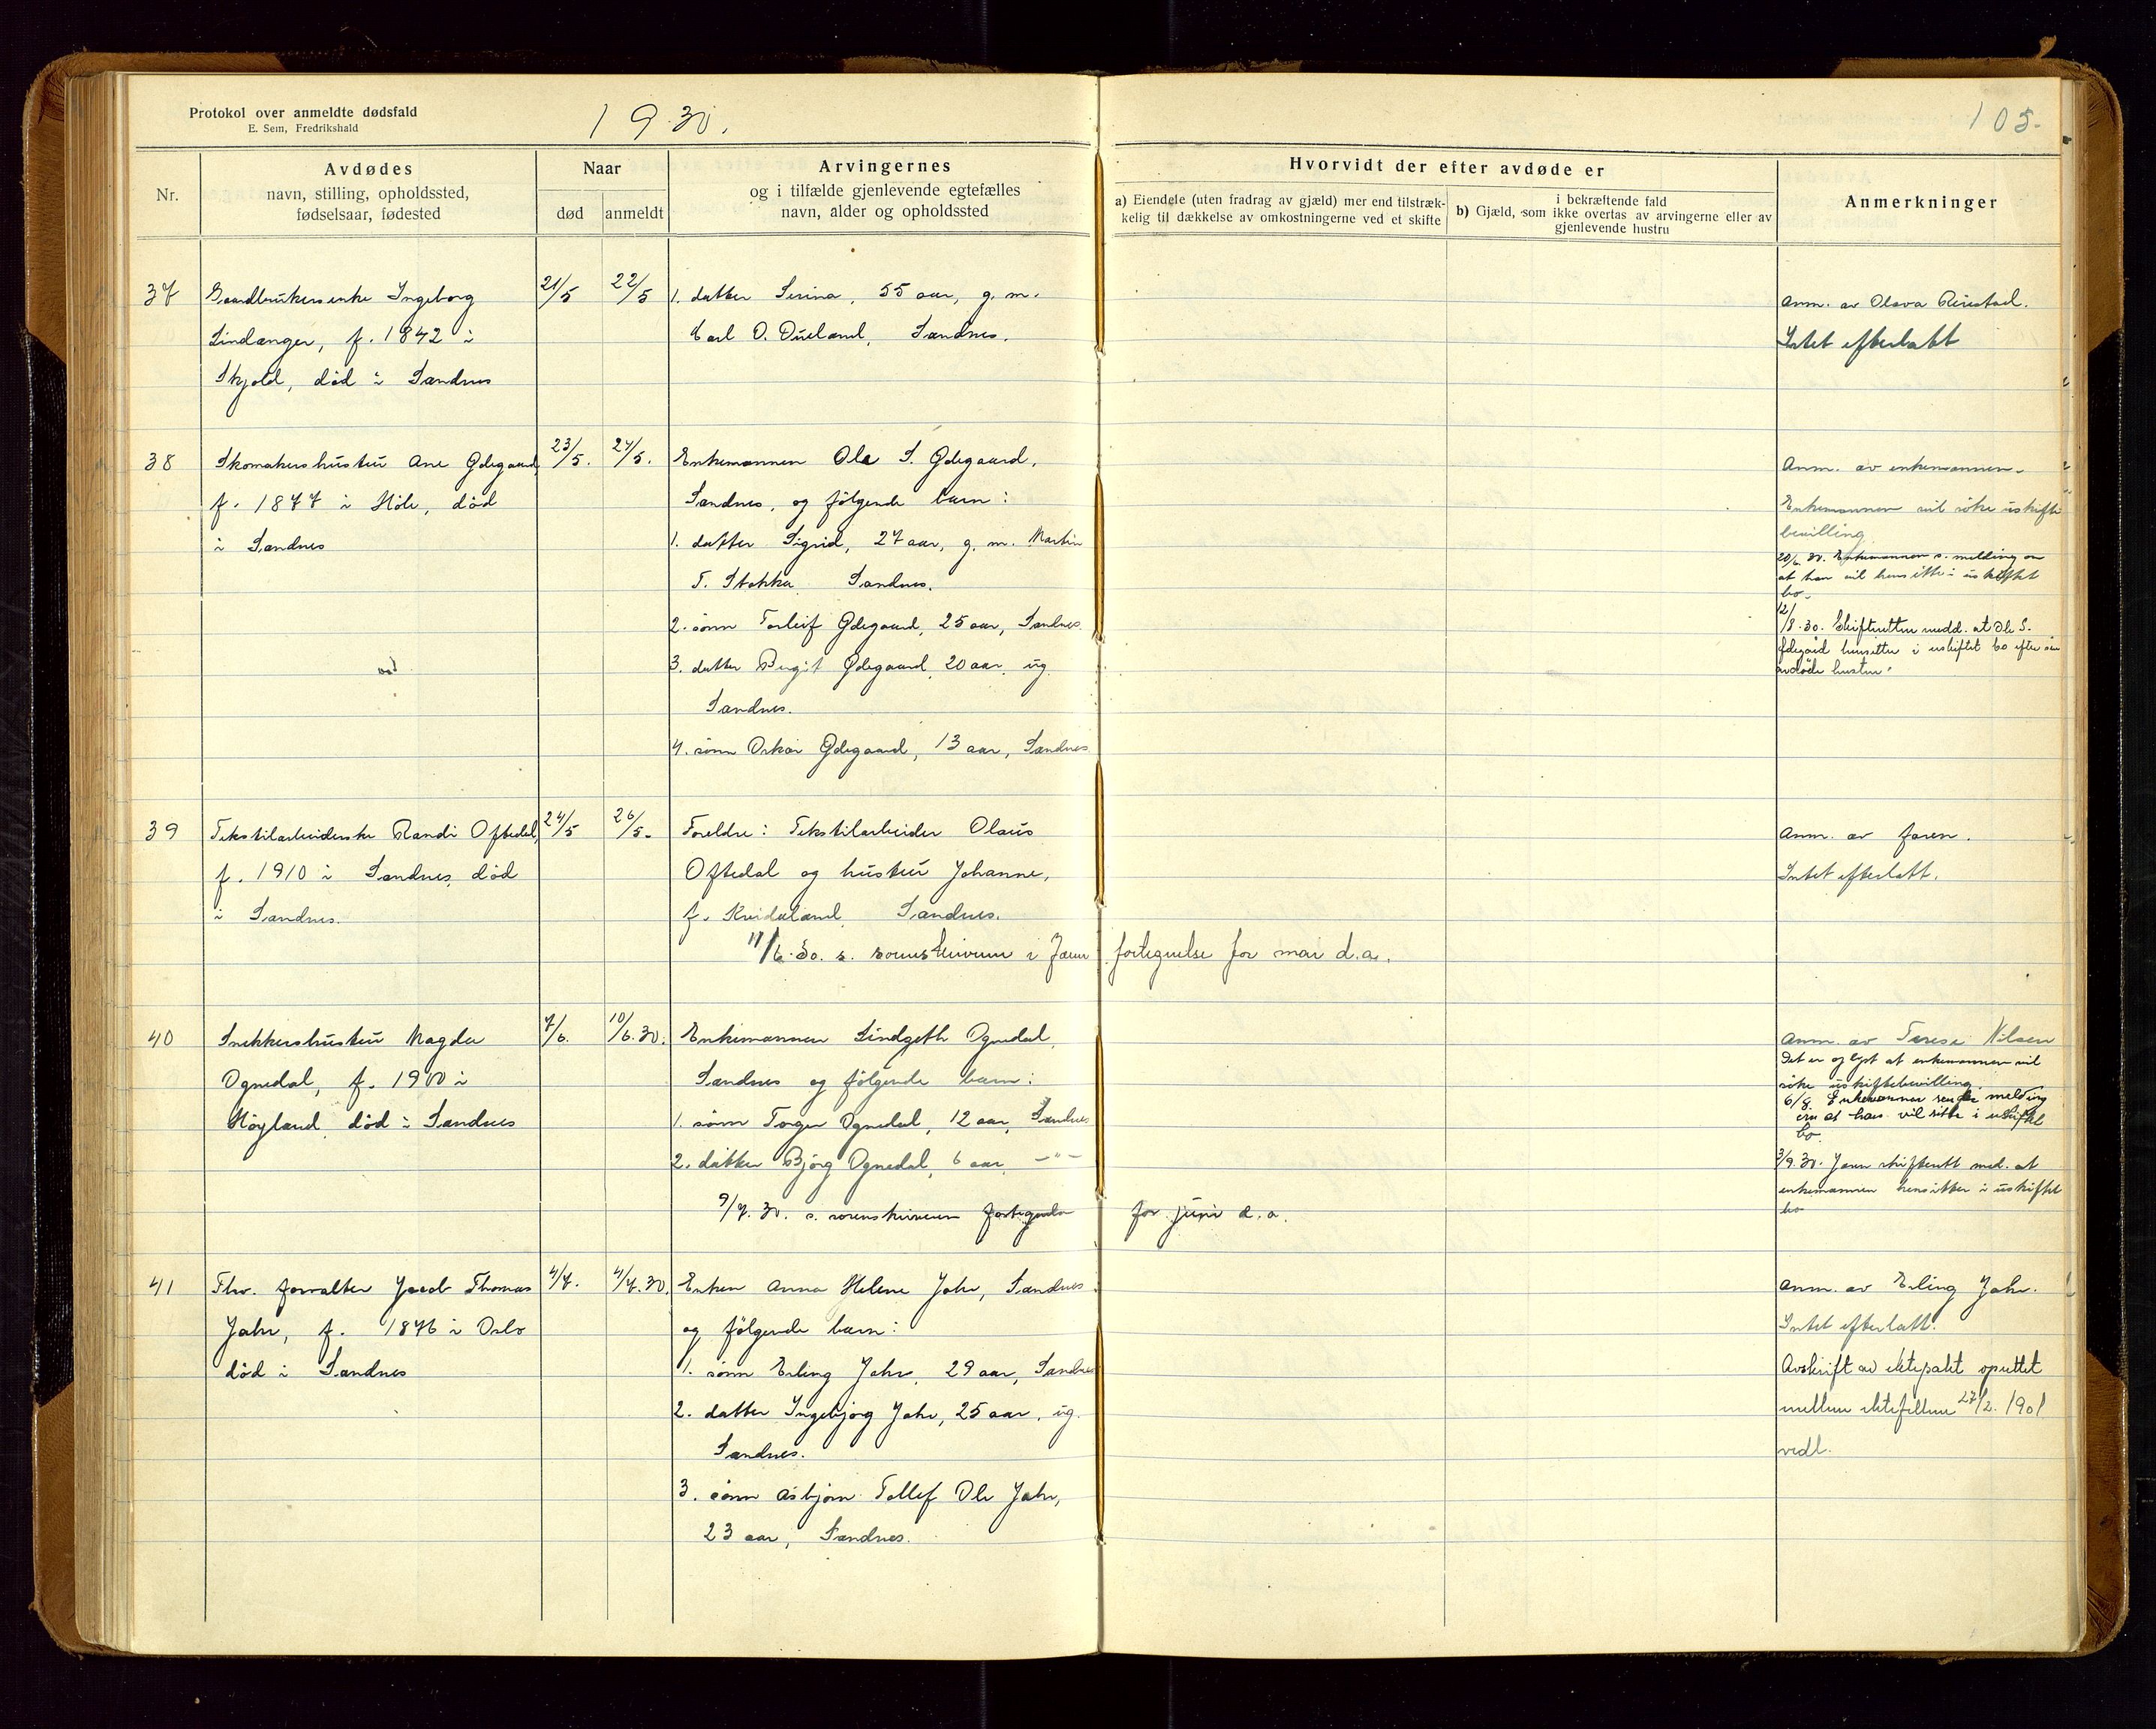 Protokol over anmeldte dødsfald
E. Sem, Fredrikshald
1930.
105.
Nr.
Avdødes
navn, stilling, opholdssted,
fødselsaar, fødested
Naar
død
anmeldt
Arvingernes
og i tilfælde gjenlevende egtefælles
navn, alder og opholdssted
Hvorvidt der efter avdøde er
a) Eiendele (uten fradrag av gjæld) mer end tilstræk-
kelig til dækkelse av omkostningerne ved et skifte
i bekræftende fald
b) Gjæld, som ikke overtas av arvingerne eller av
gjenlevende hustru
Anmerkninger
37
Gaardbrukerenke Ingeborg
Lindanger, f. 1842 i
Skjold, död i Sandnes
21/5
22/5
1. datter Serina, 55 aar, g. m.
Carl O. Dueland, Sandnes.
Anm. av Olava
Intet efterlatt
38
Skomakerhustru Ane Ødegaard,
f. 1877 i Höle, död
i Sandnes
23/5.
24/5.
Enkemannen Ole S. Ødegaard,
Sandnes, og følgende barn:
1. datter Sigrid, 27 aar, g. m. Martin
T. Stokka Sandnes.
2. sönn Torleif Ødegaard, 25 aar, Sandnes.
3. datter Bergit Ødegaard, 20 aar, ug.
Sandnes.
4. sönn Oskar Ødegaard, 13 aar, Sandnes
Anm. av enkemannen.
Enkemannen vil söke uskifte
bevilling
20/6. 30. Enkemannen s. melding om
at han vil hensitte i uskiftet
bo.
12/8. 30. Skifteretten medd. at Ole S.
Ødegård hensitter i uskiftet bo efter sin
avdöde hustru.
39
Tekstilarbeiderske Randi Oftedal,
f. 1910 i Sandnes, död
i Sandnes.
24/5
26/5.
Foreldre: Tekstilarbeider Olaus
Oftedal og hustru Johanne,
f. Kvidaland Sandnes.
11/6.30. s. sorenskriveren i Jæren fortegnelse for mai d.a.
Anm. av faren.
Intet efterlatt.
40
Snekkerhustru Magda
Ognedal, f. 1900 i
Höyland död i Sandnes
7/6.
10/6.30.
Enkemannen Sindgeth Ognedal,
Sandnes og følgende barn:
1. sönn Torger Ognedal, 12 aar, Sandnes
2. datter Bjørg Ognedal, 6 aar, -"-
9/7. 30. s. sorenskriveren fortegnelse for juni d. a.
Anm. av Terese Nilsen
Det er oplyst at enkemannen vil
söke uskiftebevilling.
6/8 Enkemannen sender melding
om at han vil sitte i uskiftet
bo
3/9. 30. Jæren skifterett med. at
enkemannen hensitter i uskiftet
bo
41
Thv. forvalter Jacob Thomas
Jahr, f. 1876 i Oslo
död i Sandnes
4/7.
4/7.30.
Enken Anna Helene Jahr, Sandnes
og følgende barn:
1. sönn Erling Jahr, 29 aar, Sandnes
2. datter Ingebjørg Jahr, 25 aar, ug.
Sandnes.
3. sönn Asbjørn Tollef Ole Jahr,
23 aar, Sandnes.
Anm. av Erling Jahr.
Intet efterlatt.
Avskrift av ektepakt oprettet
mellem ektefellene 27/2. 1901
vedl.